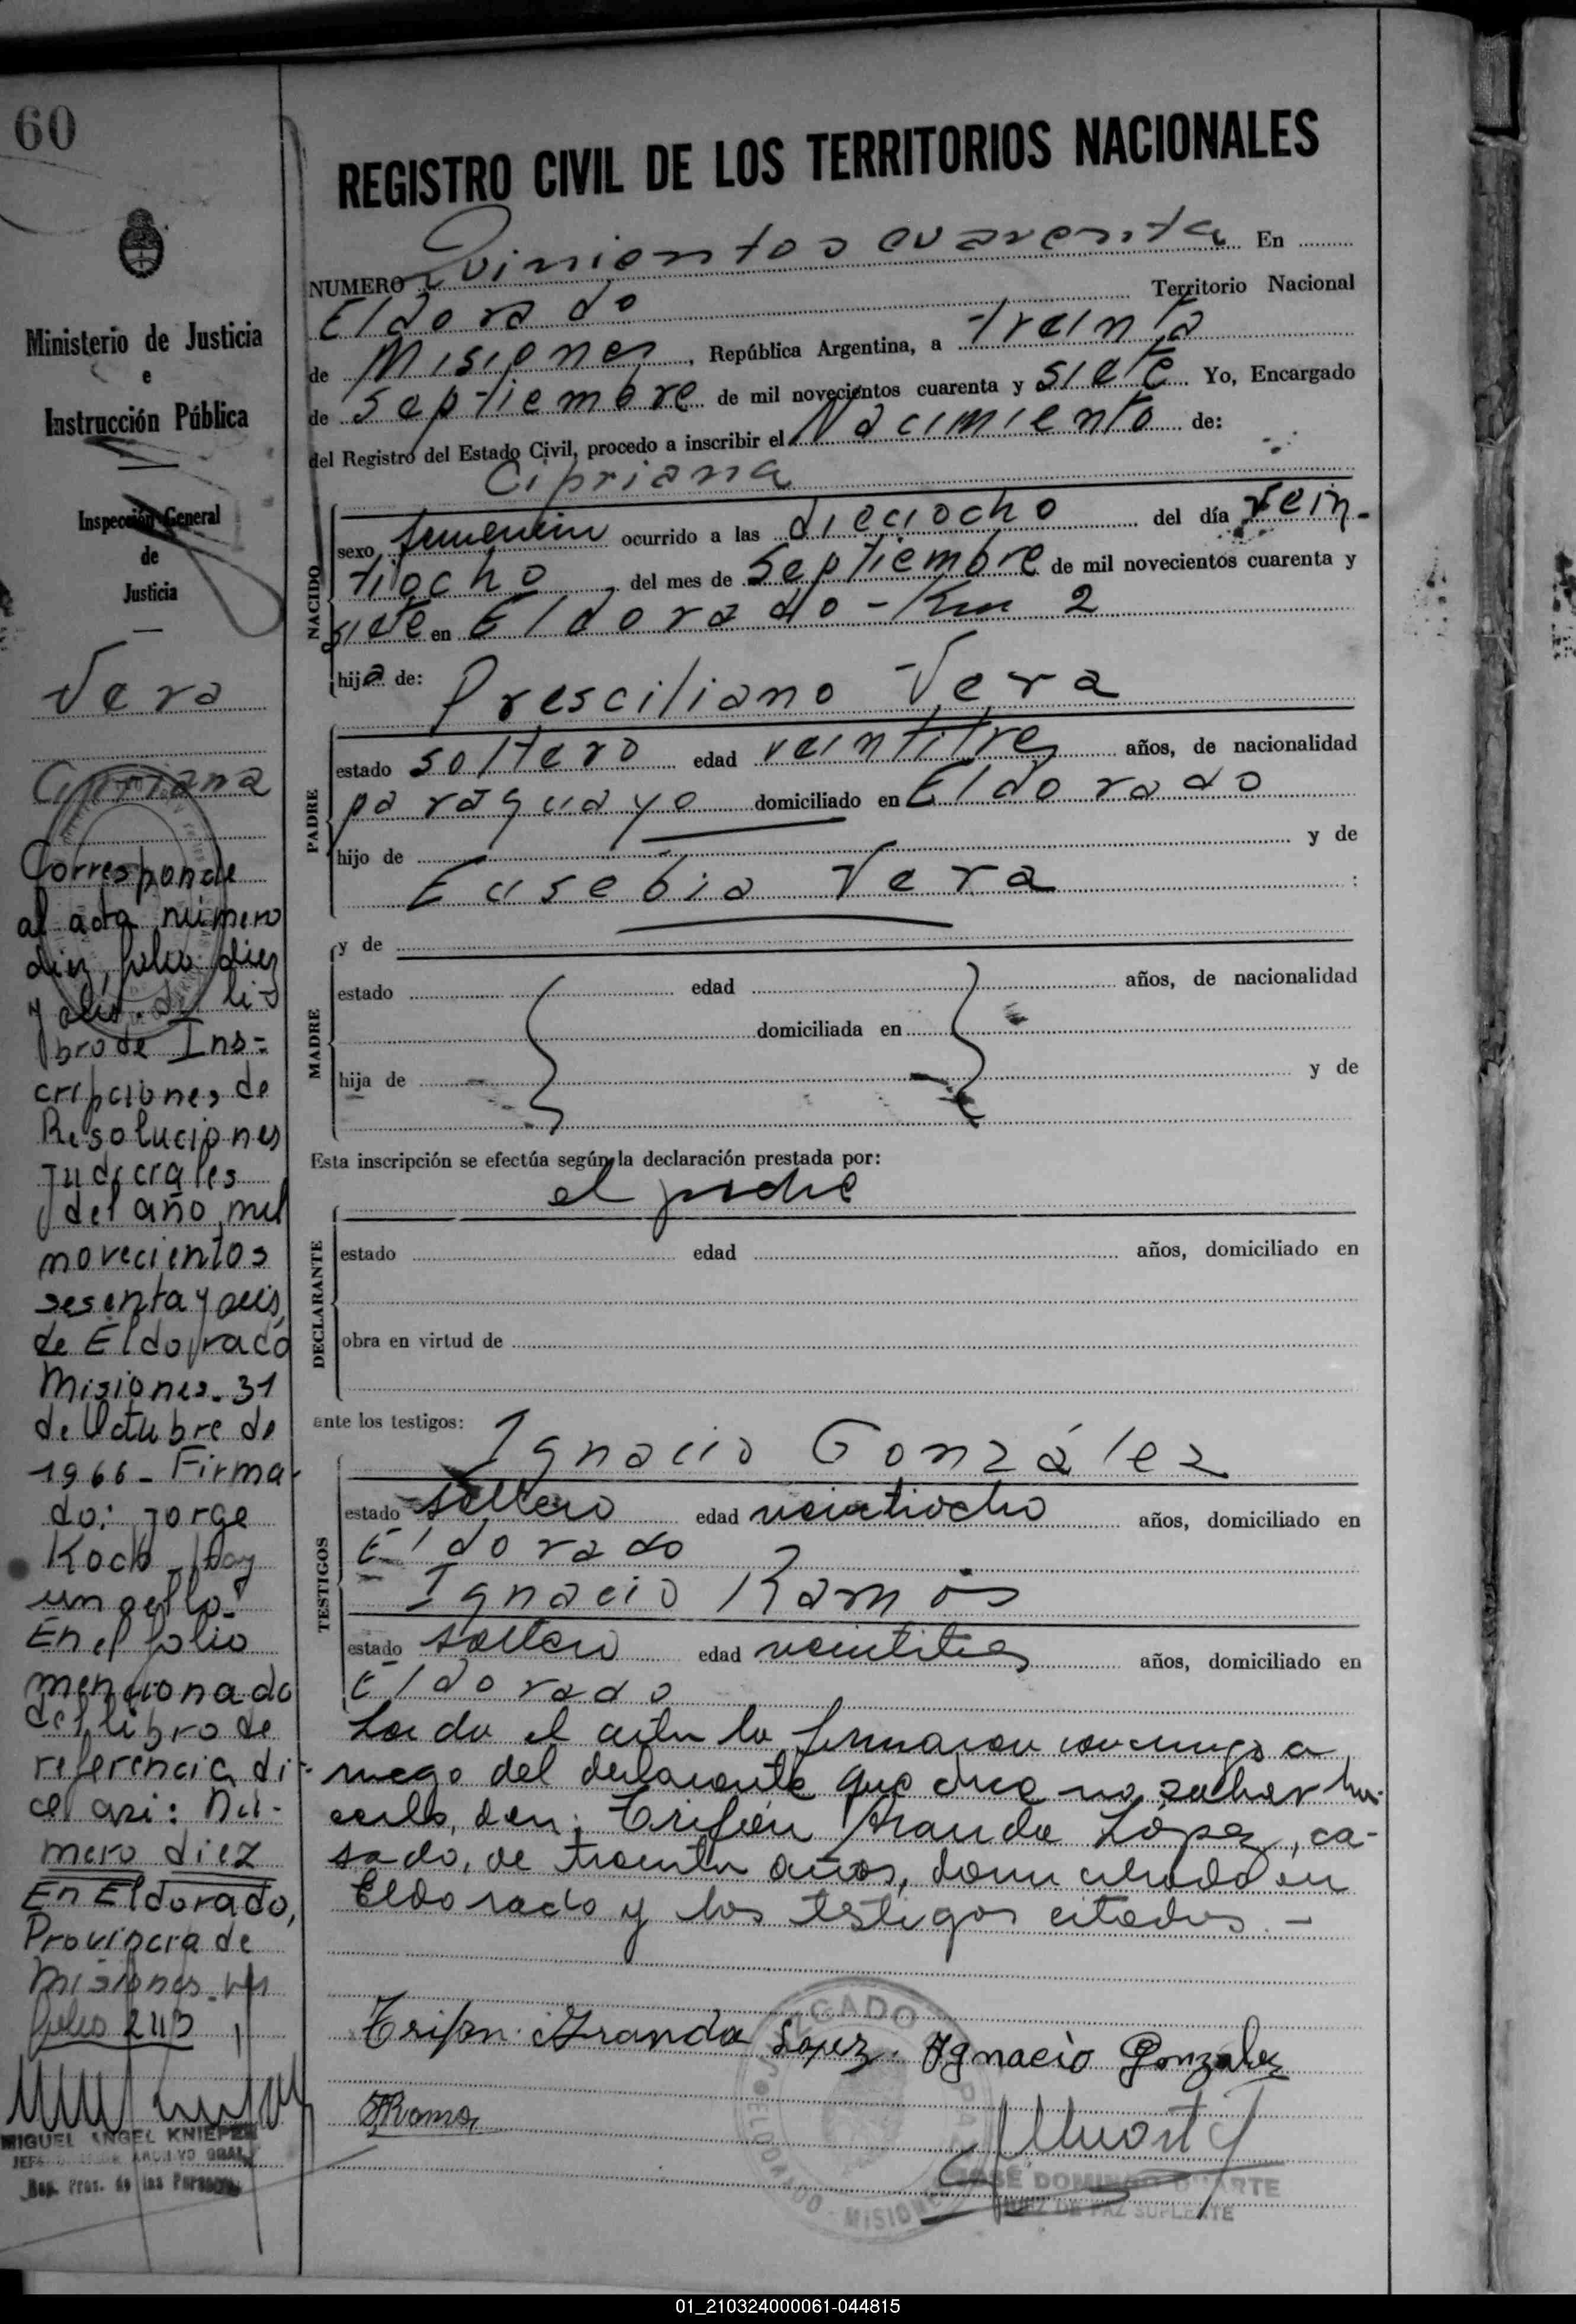 60
Ministerio de Justicia
e
Instrucción Pública
Inspección General
de
Justicia
Vera
Cipriana
Corresponde
al acta número
diez, folio diez
y del li-
bro de Ins=
cripciones de
Resoluciones
Judiciales
del año mil
novecientos
sesenta y seis,
de Eldorado
Misiones. 31
de Octubre de
1966 - Firma-
do: Jorge
Koch - Hay
un sello -
En el folio
mencionado
del libro de
referencia di-
ce asi: Nú-
mero diez
En Eldorado,
Provincia de
Misiones
folio 243
MIGUEL ANGEL KNIEPER
Reg. Prov. de las Personas
REGISTRO CIVIL DE LOS TERRITORIOS NACIONALES
NUMERO Quinientos cuarenta En
Eldorado Territorio Nacional
de Misiones, República Argentina, a treinta
de Septiembre de mil novecientos cuarenta y siete Yo, Encargado
del Registro del Estado Civil, procedo a inscribir el Nacimiento de:
Cipriana
NACIDO
sexo femenin ocurrido a las dieciocho del día vein-
tiocho del mes de Septiembre de mil novecientos cuarenta y
siete en Eldorado - Km 2
hija de: Presciliano Vera
PADRE
estado soltero edad veintitres años, de nacionalidad
paraguayo domiciliado en Eldorado
hijo de y de
Eusebia Vera :
y de
MADRE
estado edad años, de nacionalidad
domiciliada en
hija de y de
Esta inscripción se efectúa según la declaración prestada por:
el padre
DECLARANTE
estado edad años, domiciliado en
obra en virtud de
ante los testigos:
Ignacio González
TESTIGOS
estado soltero edad veintiocho años, domiciliado en
Eldorado
Ignacio Ramos
estado soltero edad veintitres años, domiciliado en
Eldorado
Leida el acta la firmaron conmigo a
ruego del declarante que dice no saber ha-
cerlo, don: Trifón Aranda López, ca-
sado, de treinta años, domiciliado en
Eldorado y los testigos citados. -
Trifon Aranda Lopez. Ygnacio Gonzalez
IRamos
JUZGADO DE PAZ
ELDORADO - MISIONES
JOSÉ DOMINGO DUARTE
JUEZ DE PAZ SUPLENTE
01_210324000061-044815